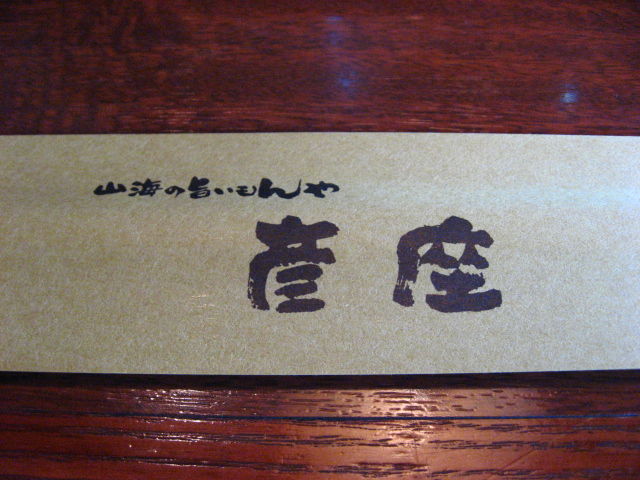 山海の旨いもんや
彦座